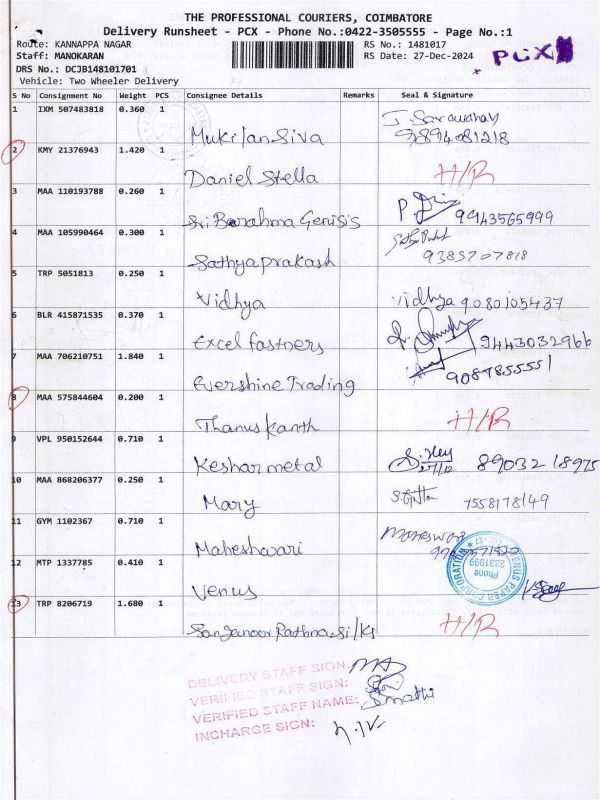 THE PROFESSIONAL COURIERS, COIMBATORE
Delivery Runsheet - PCX - Phone No.:0422-3505555 - Page No.:1
Route: KANNAPPA NAGAR RS No.: 1481017
Staff: MANOKARAN RS Date: 27-Dec-2024 PCX
DRS No.: DCJB148101701
Vehicle: Two Wheeler Delivery
S No Consignment No Weight PCS Consignee Details Remarks Seal & Signature
1 IXM 507483818 0.360 1 Mukilan Siva 9894081218
2 KMY 21376943 1.420 1 Daniel Stella H/R
3 MAA 110193788 0.260 1 Sri Barahma Genisis 9943565999
4 MAA 105990464 0.300 1 Sathyaprakash 9385707818
5 TRP 5051813 0.250 1 Vidhya Vidhya 9080105437
6 BLR 415871535 0.370 1 Excel fastners 9443032966
7 MAA 706210751 1.840 1 Evershine Trading 9087855551
8 MAA 575844604 0.200 1 Thanuskanth H/R
9 VPL 950152644 0.710 1 Keshar metal 27/12 8903218975
10 MAA 868206377 0.250 1 Mary 7558178149
11 GYM 1102367 0.710 1 Maheshwari
12 MTP 1337785 0.410 1 Venus VENUS PAPER CORPORATION Phone 2331999
13 TRP 8206719 1.680 1 H/R
DELIVERY STAFF SIGN:
VERIFIED STAFF SIGN:
VERIFIED STAFF NAME: Smathi
INCHARGE SIGN: